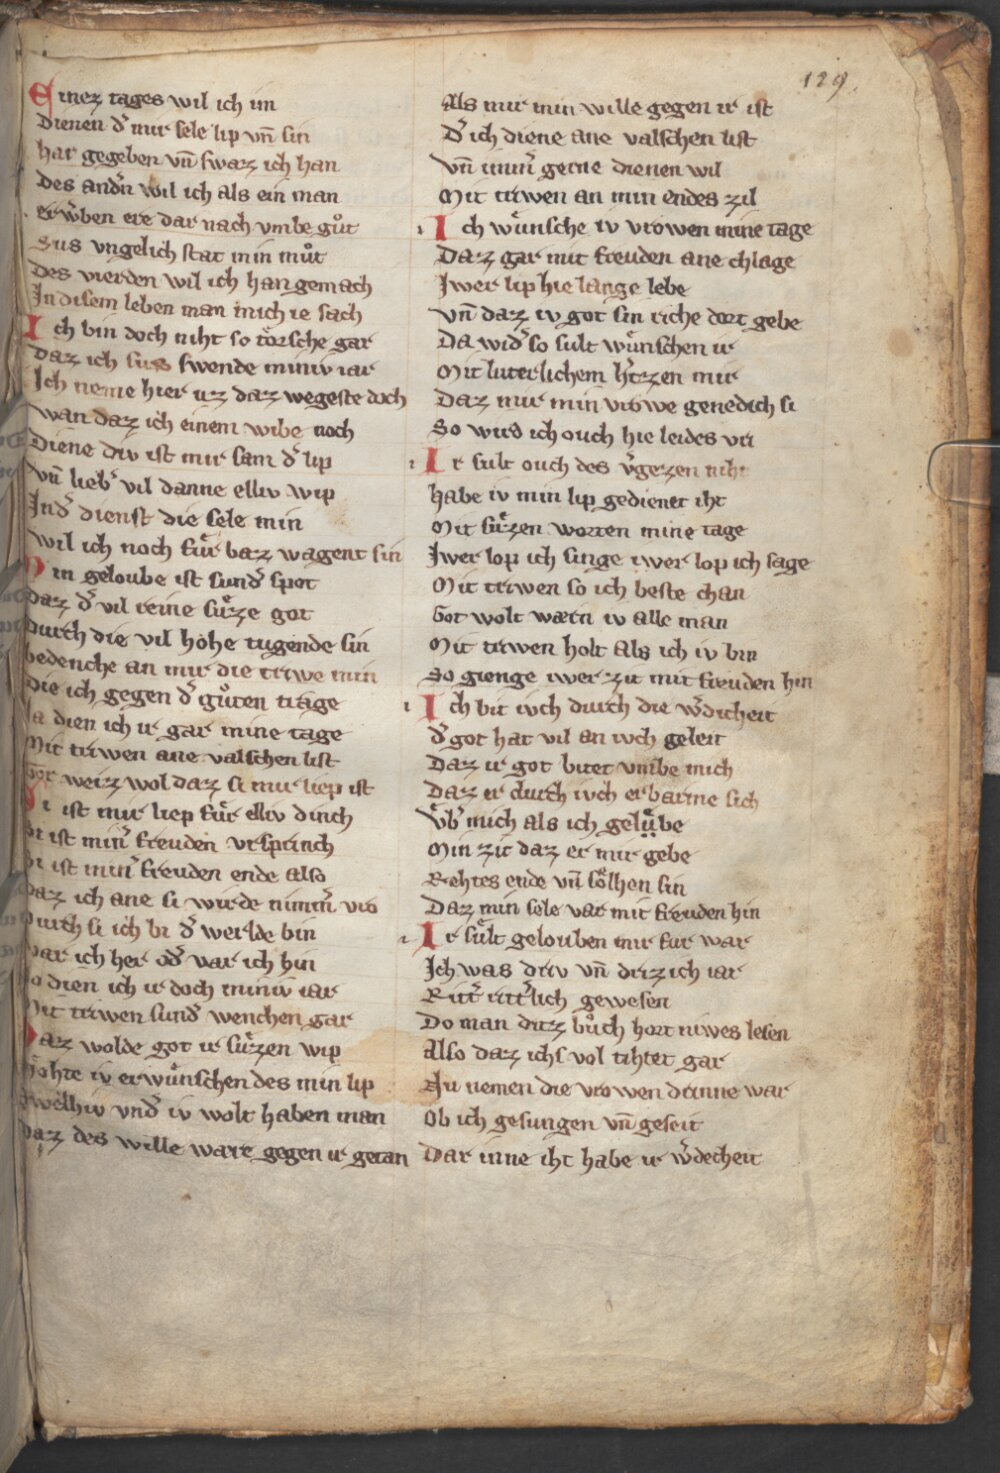 129.
Einez tages wil ich im
Dienen d̕ mir sele lip vn̄ sin
hat gegeben vn̄ swaz ich han
Des and̕n wil ich als ein man
erw̕ben ere dar nach vmbe gůt
Sus vngelich stat min můt
Des vierden wil ich han gemach
In disem leben man mich ie sach
Ich bin doch niht so toͤrsche gar
Daz ich sus swende miniv iar
Ich neme hier uz daz wegeste doch
wan daz ich einem wibe noch
Diene div ist mir sam d̕ lip
vn̄ lieb̕ vil danne elliv wip
Ind̕ dienst die sele min
wil ich noch fuͤr baz wagent sin
Min geloube ist sund̕ spot
Daz d̕ vil reine suͤze got
Durch die vil hohe tugende sin
bedenche an mir die triwe min
Die ich gegen d̕ gůten trage
Ia dien ich ir gar mine tage
Mit triwen ane valschen list
Got weiz wol daz si mir liep ist
Si ist mir liep fuͤr elliv dinch
Si ist min̕ freuden vrsprinch
Si ist min̕ freuden ende also
Daz ich ane si wirde nimm̕ vro
Durch si ich bi d̕ werlde bin
var ich her od̕ var ich hin
So dien ich ir doch miniv iar
Mit triwen sund̕ wenchen gar
Daz wolde got ir suͤzen wip
Moͤhte iv erwuͤnschen des min lip
Swelhiv vnd̕ iv wolt haben man
Daz des wille ware gegen ir getan
Als mir min wille gegen ir ist
D̕ ich diene ane valschen list
vn̄ imm̕ gerne dienen wil
Mit triwen an min endes zil
Ich wuͤnsche iv vrowen mine tage
Daz gar mit freuden ane chlage
Iwer lip hie lange lebe
vn̄ daz iv got sin riche dort gebe
Da wid̕ so sult wuͤnschen ir
Mit luterlichem h̕tzen mir
Daz mir min vrowe genedich si
So wird ich ouch hie leides vri
Ir sult ouch des v̕gezen niht
habe iv min lip gedienet iht
Mit suͤzen worten mine tage
Iwer lop ich singe iwer lop ich sage
Mit triwen so ich beste chan
Got wolt wærn iv alle man
Mit triwen holt als ich iv bin
So gienge iwer zit mit freuden hin
Ich bit ivch durch die w̕dicheit
d̕ got hat vil an ivch geleit
Daz ir got bitet vmbe mich
Daz er durch ivch erbarme sich
vͤb̕ mich als ich geluͤbe
Min zit daz er mir gebe
Rehtes ende vn̄ soͤlhen sin
Daz min sele var mit freuden hin
Ir suͤlt gelouben mir fur war
Ich was driv vn̄ drizich iar
Ritt̕ ritt̕lich gewesen
Do man ditz bůch hort niwes lesen
Also daz ichs vol tihtet gar
Nu nemen die vrowen drinne war
Ob ich gesungen vn̄ geseit
Dar inne iht habe ir w̕decheit